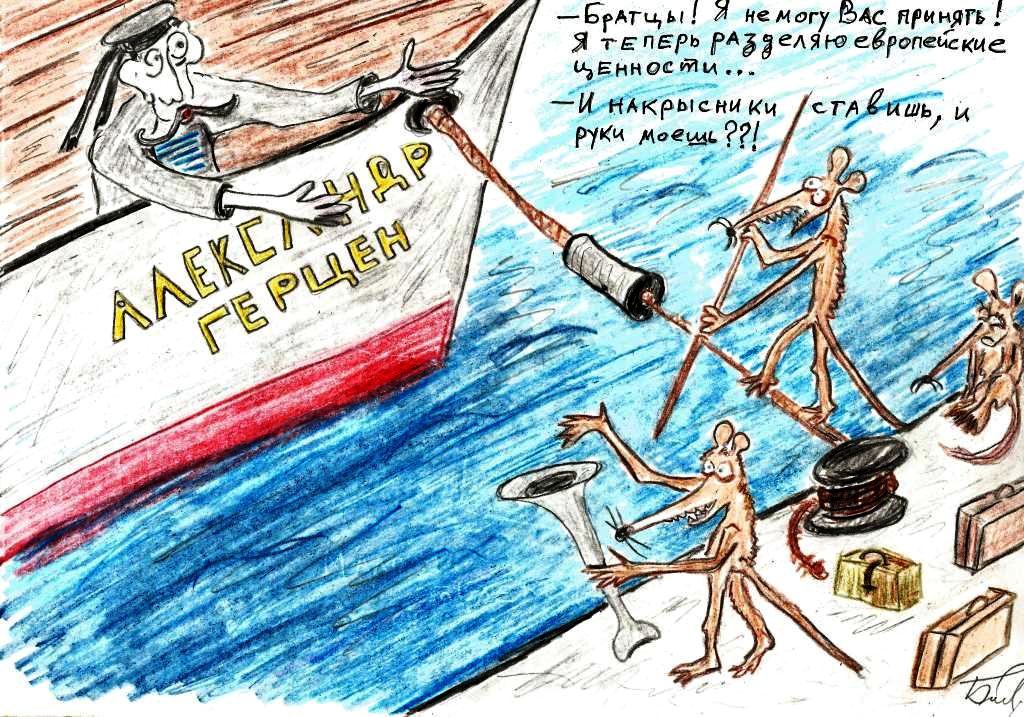 — Братцы! Я не могу Вас принять!
Я теперь разделяю европейские
ценности...
— И накрысники ставишь, и
руки моешь??!
АЛЕКСАНДР
ГЕРЦЕН